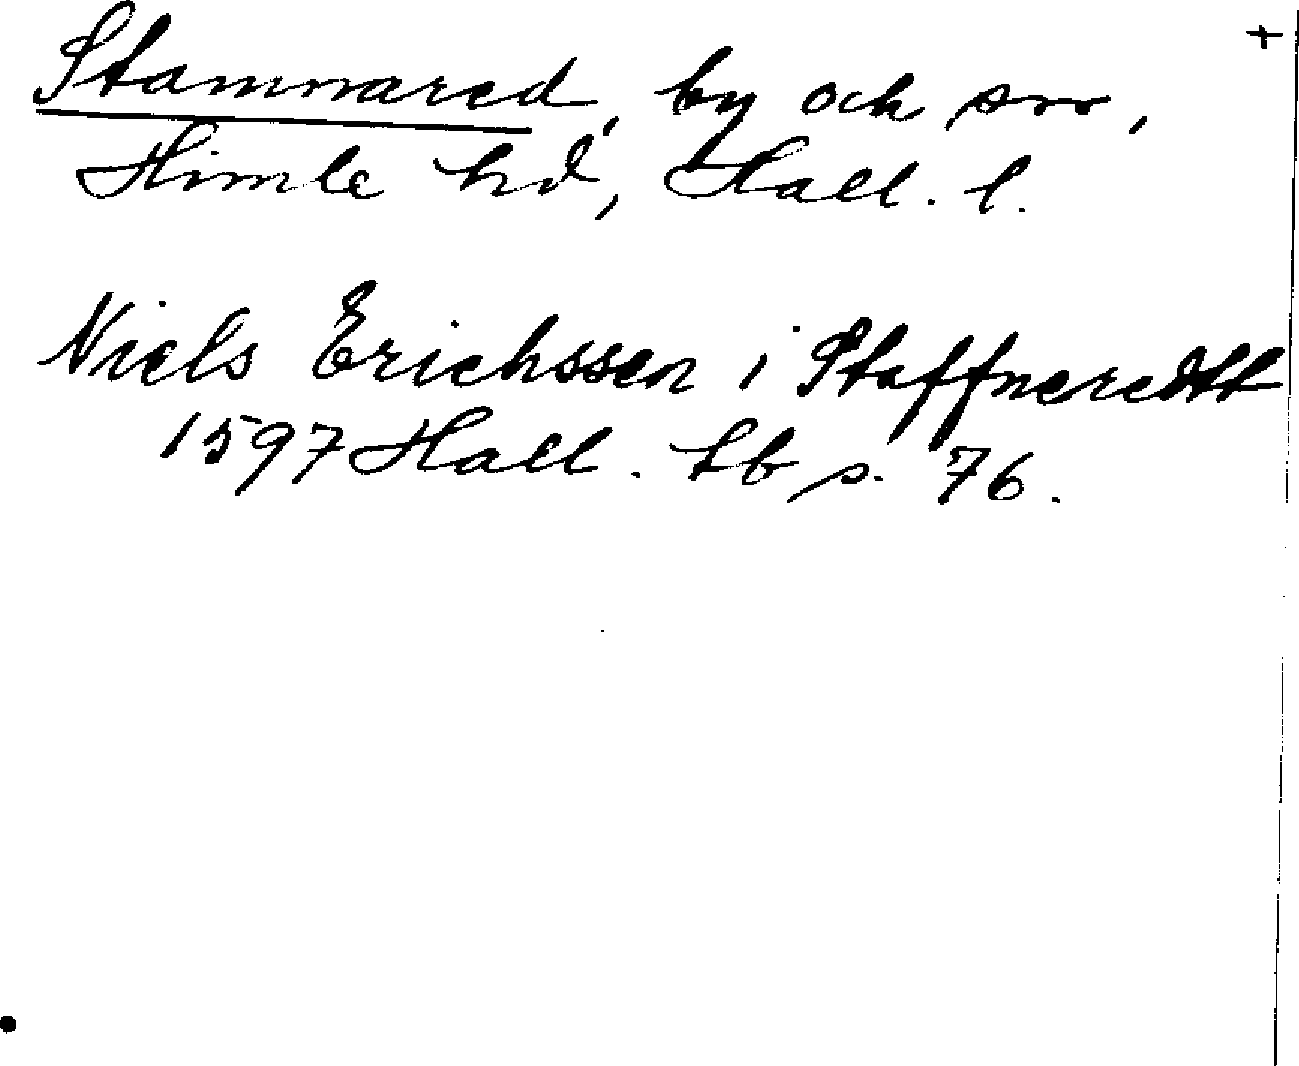 +
Stamnared, by och sn,
Himle hd, Hall. l.
Niels Erichssen i Staffneredtt
1597 Hall. Lb s. 76.